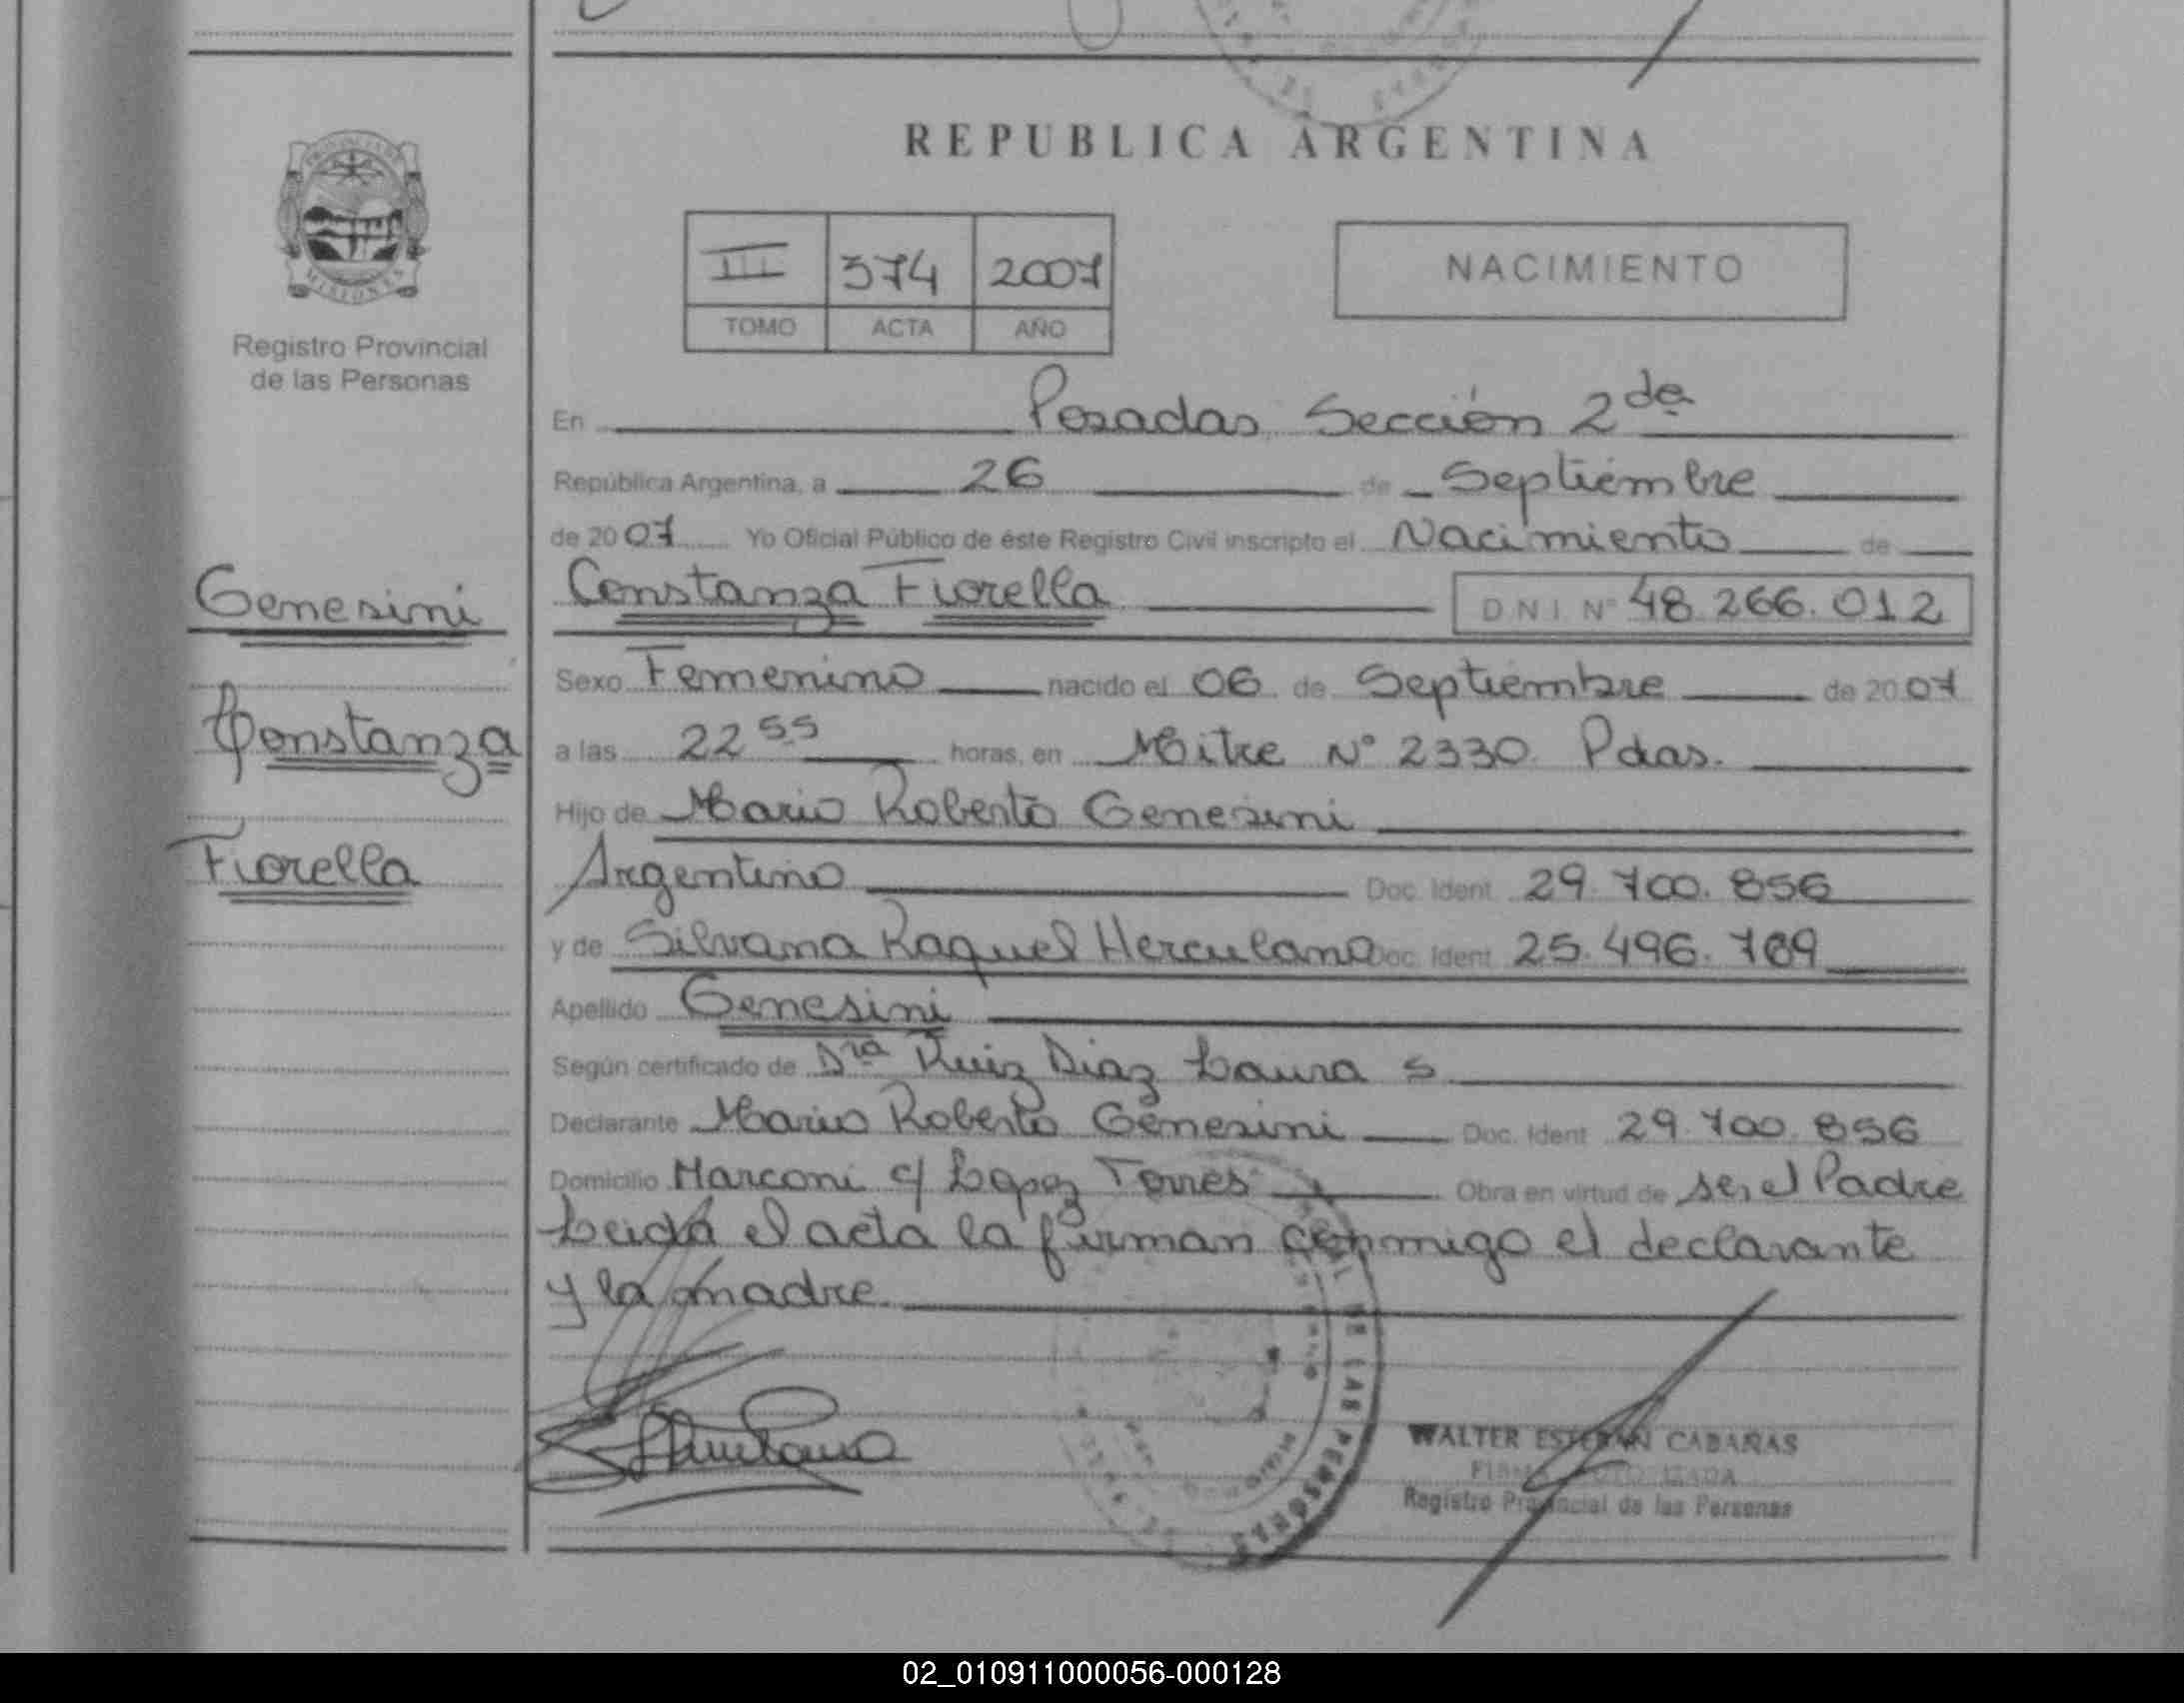 REPUBLICA ARGENTINA
III 374 2007
TOMO ACTA AÑO
NACIMIENTO
PROVINCIA DE
MISIONES
Registro Provincial
de las Personas
Genesini
Constanza
Fiorella
En Posadas, Sección 2da
República Argentina, a 26 de Septiembre
de 2007 Yo Oficial Público de éste Registro Civil inscripto el Nacimiento de
Constanza Fiorella DNI Nº 48.266.012
Sexo Femenino nacido el 06 de Septiembre de 2007
a las 22 55 horas, en Mitre Nº 2330. Pdas.
Hijo de Mario Roberto Genesini
Argentino Doc. Ident. 29.700.856
y de Silvana Raquel Herculano Doc. Ident. 25.496.769
Apellido Genesini
Según certificado de Dra Ruiz Diaz Laura S
Declarante Mario Roberto Genesini Doc. Ident 29.700.856
Domicilio Marconi c/ Lopez Torres Obra en virtud de ser el Padre
Leida el acta la firman conmigo el declarante
y la madre
DE LAS PERSONAS
WALTER ESTEBAN CABAÑAS
FIRMA AUTORIZADA
Registro Provincial de las Personas
02_010911000056-000128